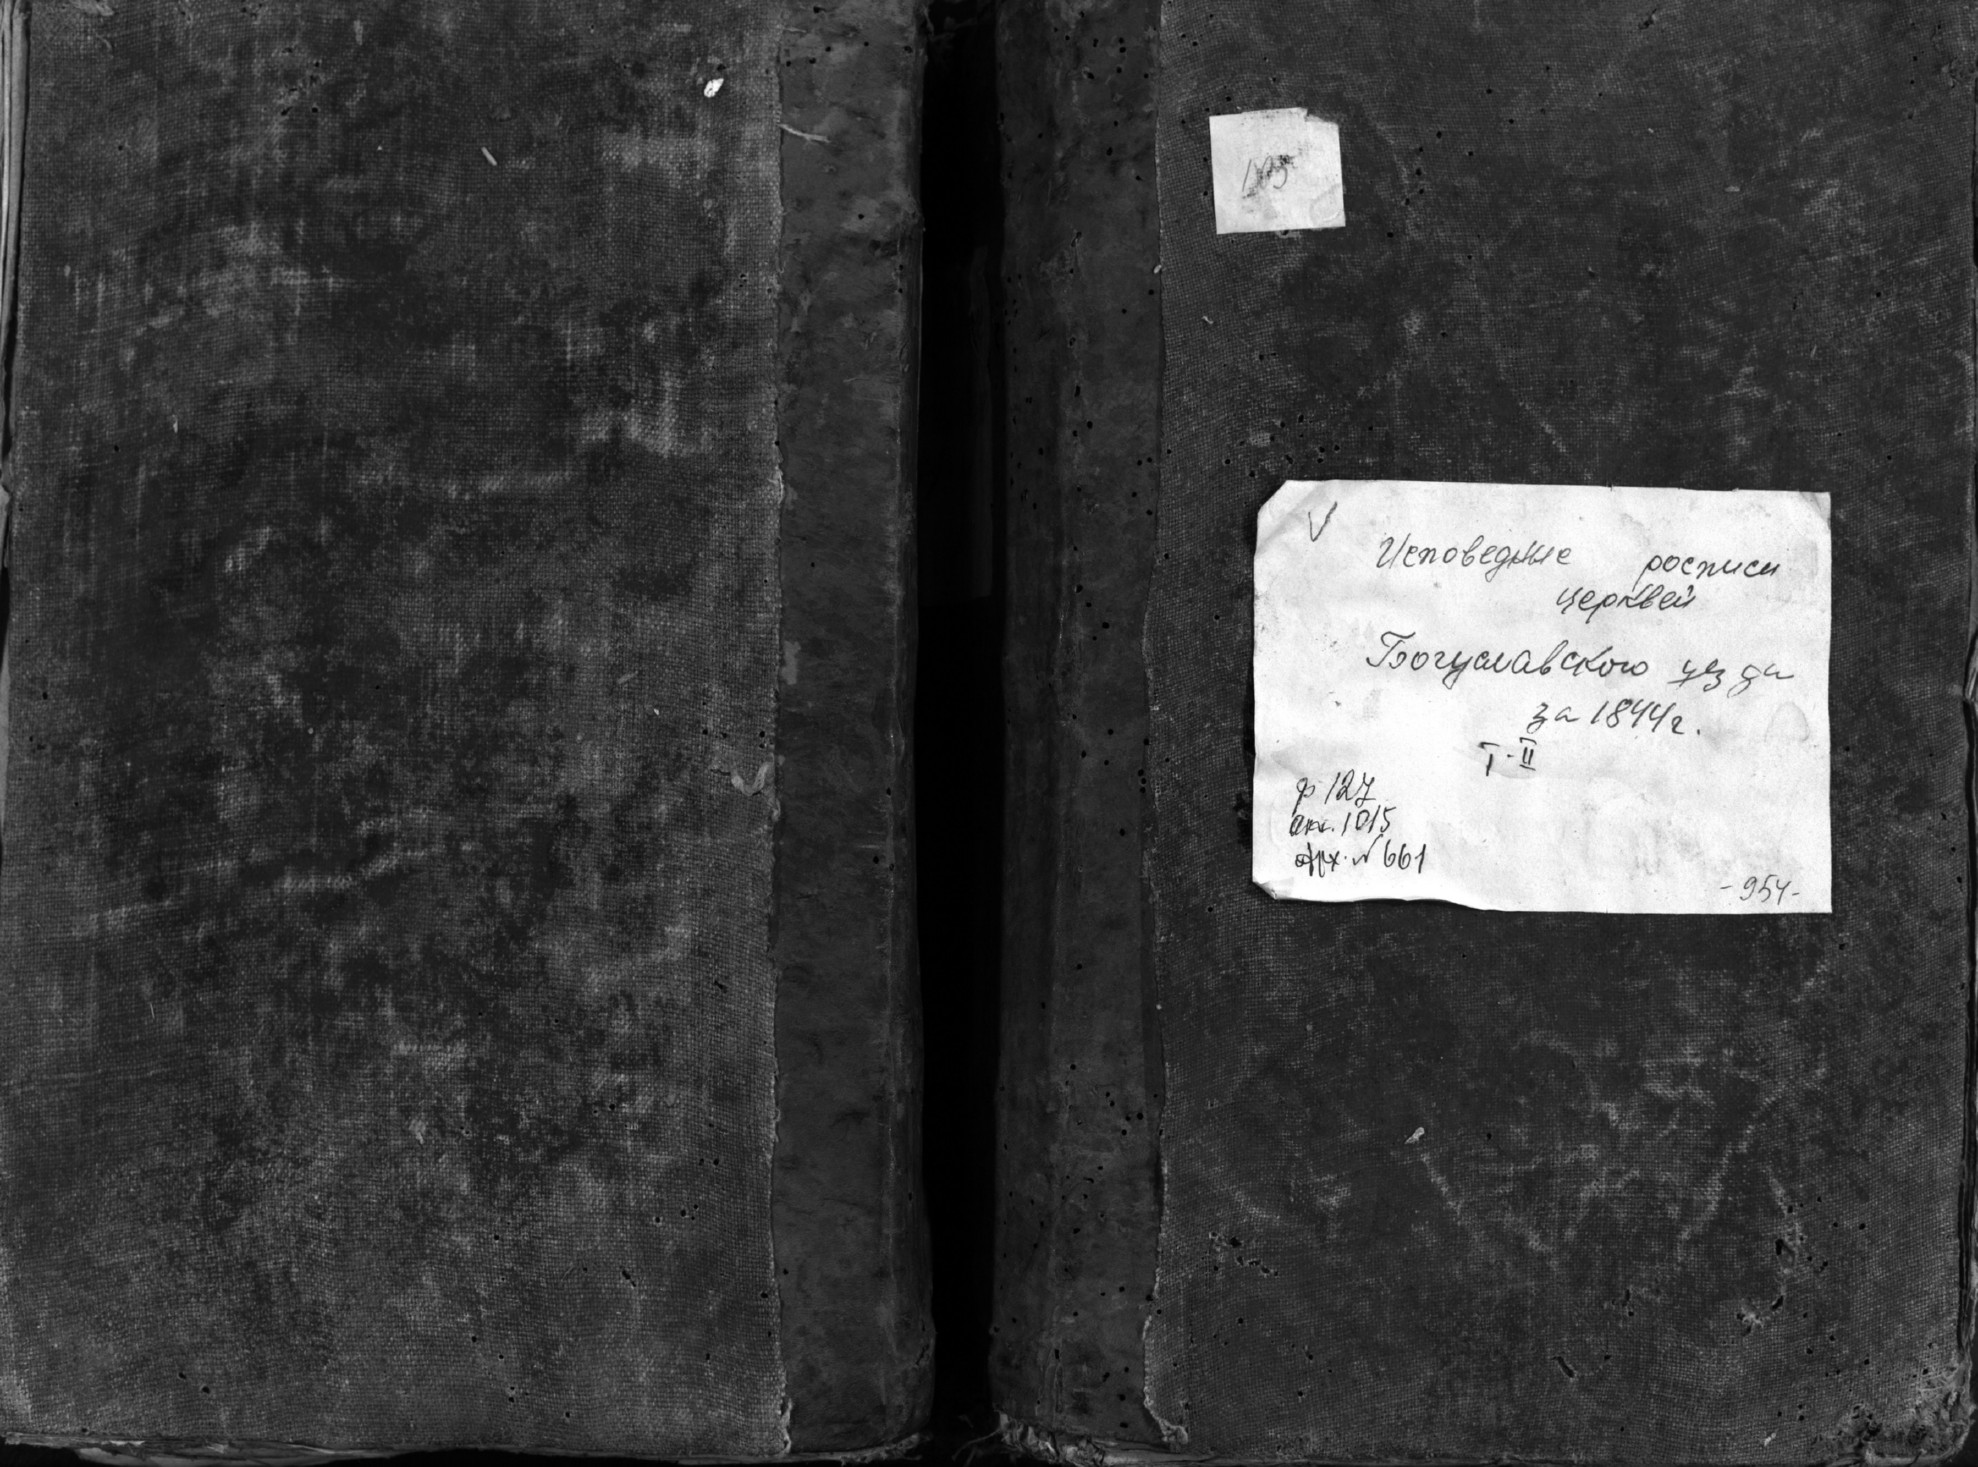 V
Исповедные росписи
церквей
Богуславского уезда
за 1844г.
I-II
ф 127
оп. 1015
арх. № 661
-954-